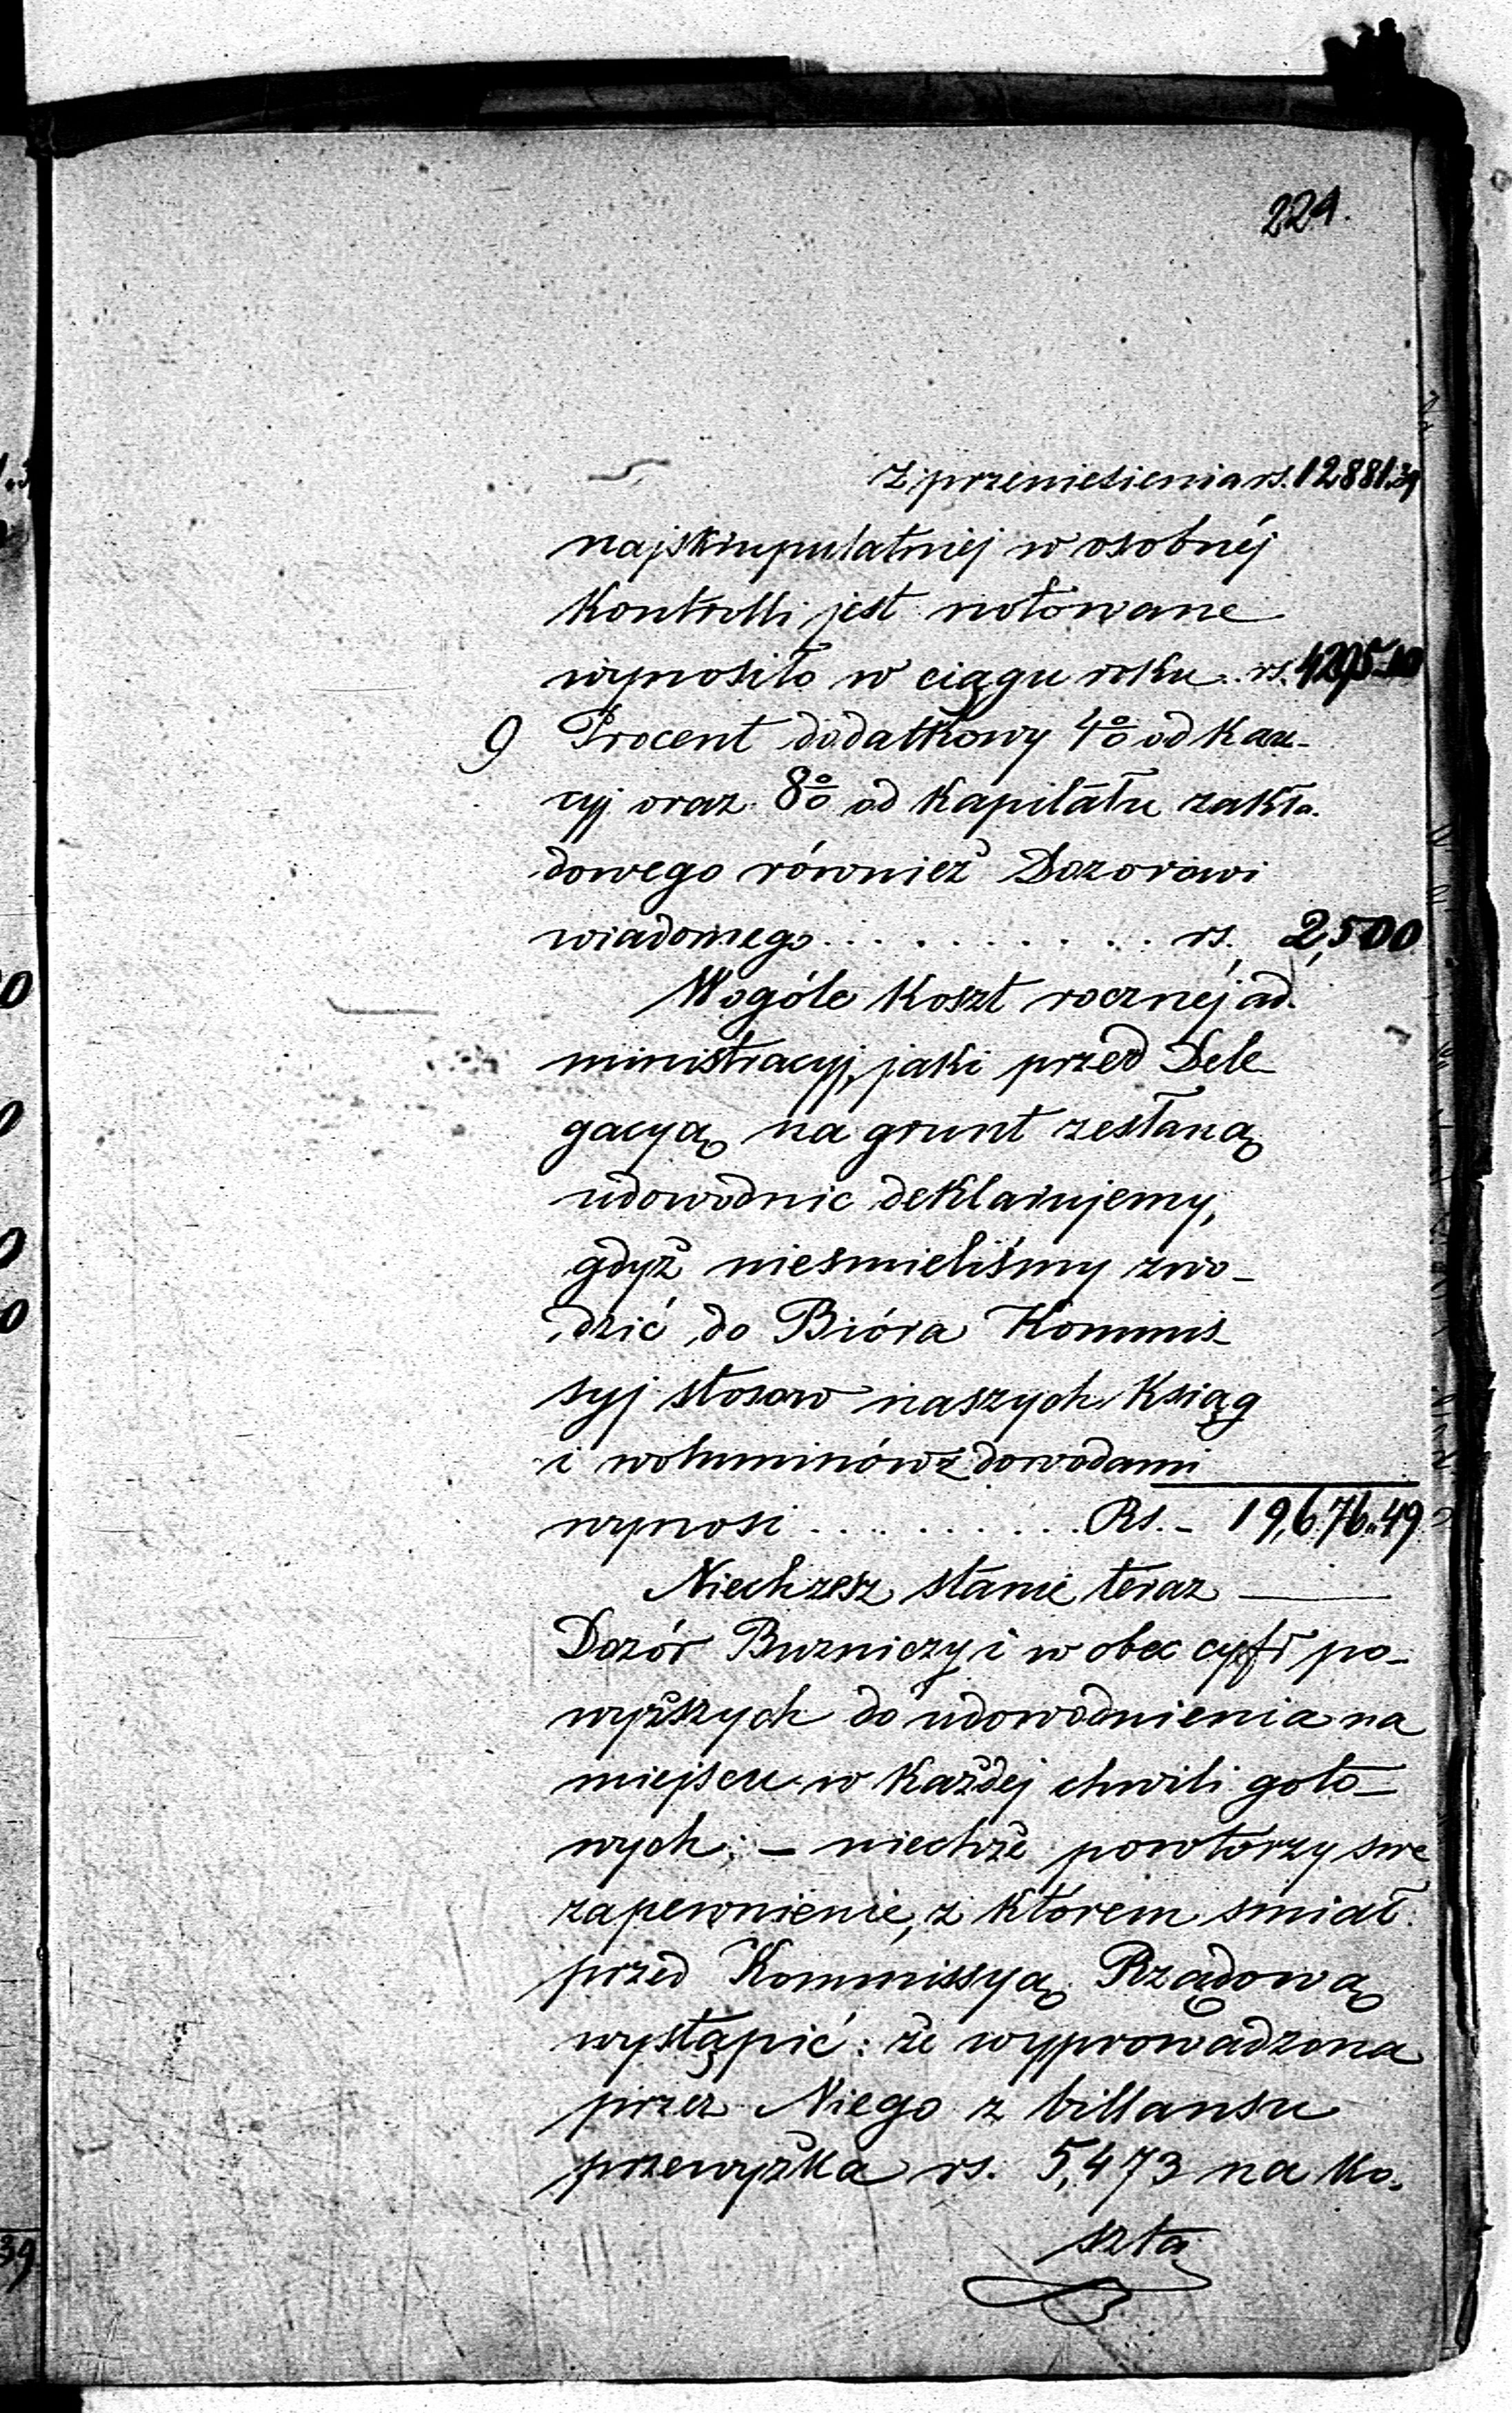 224.
z przeniesienia rs. 12881.39
najskrupulatniej w osobnéj
Kontrolli jest notowane
wynosiło w ciągu roku .. rs. 4295.10
9 Procent dodatkowy 4% od kau-
cyj oraz 8% od Kapitału zakła-
dowego również Dozorowi
wiadomego . . . . . . . . . . . rs. 2,500
Wogóle Koszt rocznéj ad-
ministracyj, jaki przed Dele-
gacyą na grunt zesłaną
udowodnic deklarujemy,
gdyż niesmieliśmy zwo-
dzić do Bióra Kommis-
syj stosow naszych Ksiąg
i woluminów z dowodami
wynosi . . . . . . . . . . Rs. - 19,676.49
Niechzesz stanie teraz —
Dozór Bużniczy i w obec cyfr po-
wyższych do udowodnienia na
miejscu w Każdej chwili goto-
wych; - niechże powtorzy swe
zapewnienie, z ktorem smiał
przed Kommissyą Rządową
wystąpić: że wyprowadzona
przez Niego z billansu
przewyżka rs. 5,473 na ko-
szta